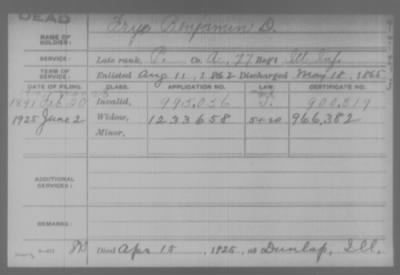 DEAD
NAME OF SOLDIER: Frye Benjamin D.
SERVICE: Late rank, P. Co. A, 77 Reg't Ill Inf.
TERM OF SERVICE: Enlisted Aug 11, 1862 Discharged May 18, 1865
DATE OF FILING. CLASS. APPLICATION NO. LAW. CERTIFICATE NO.
1891 Feb. 20 Invalid, 995,036 J. 900,519
1925 June 2 Widow, 1233658 5-1-20 966,382
Minor,
ADDITIONAL SERVICES:
REMARKS:
Died Apr 15, 1925, at Dunlap, Ill.